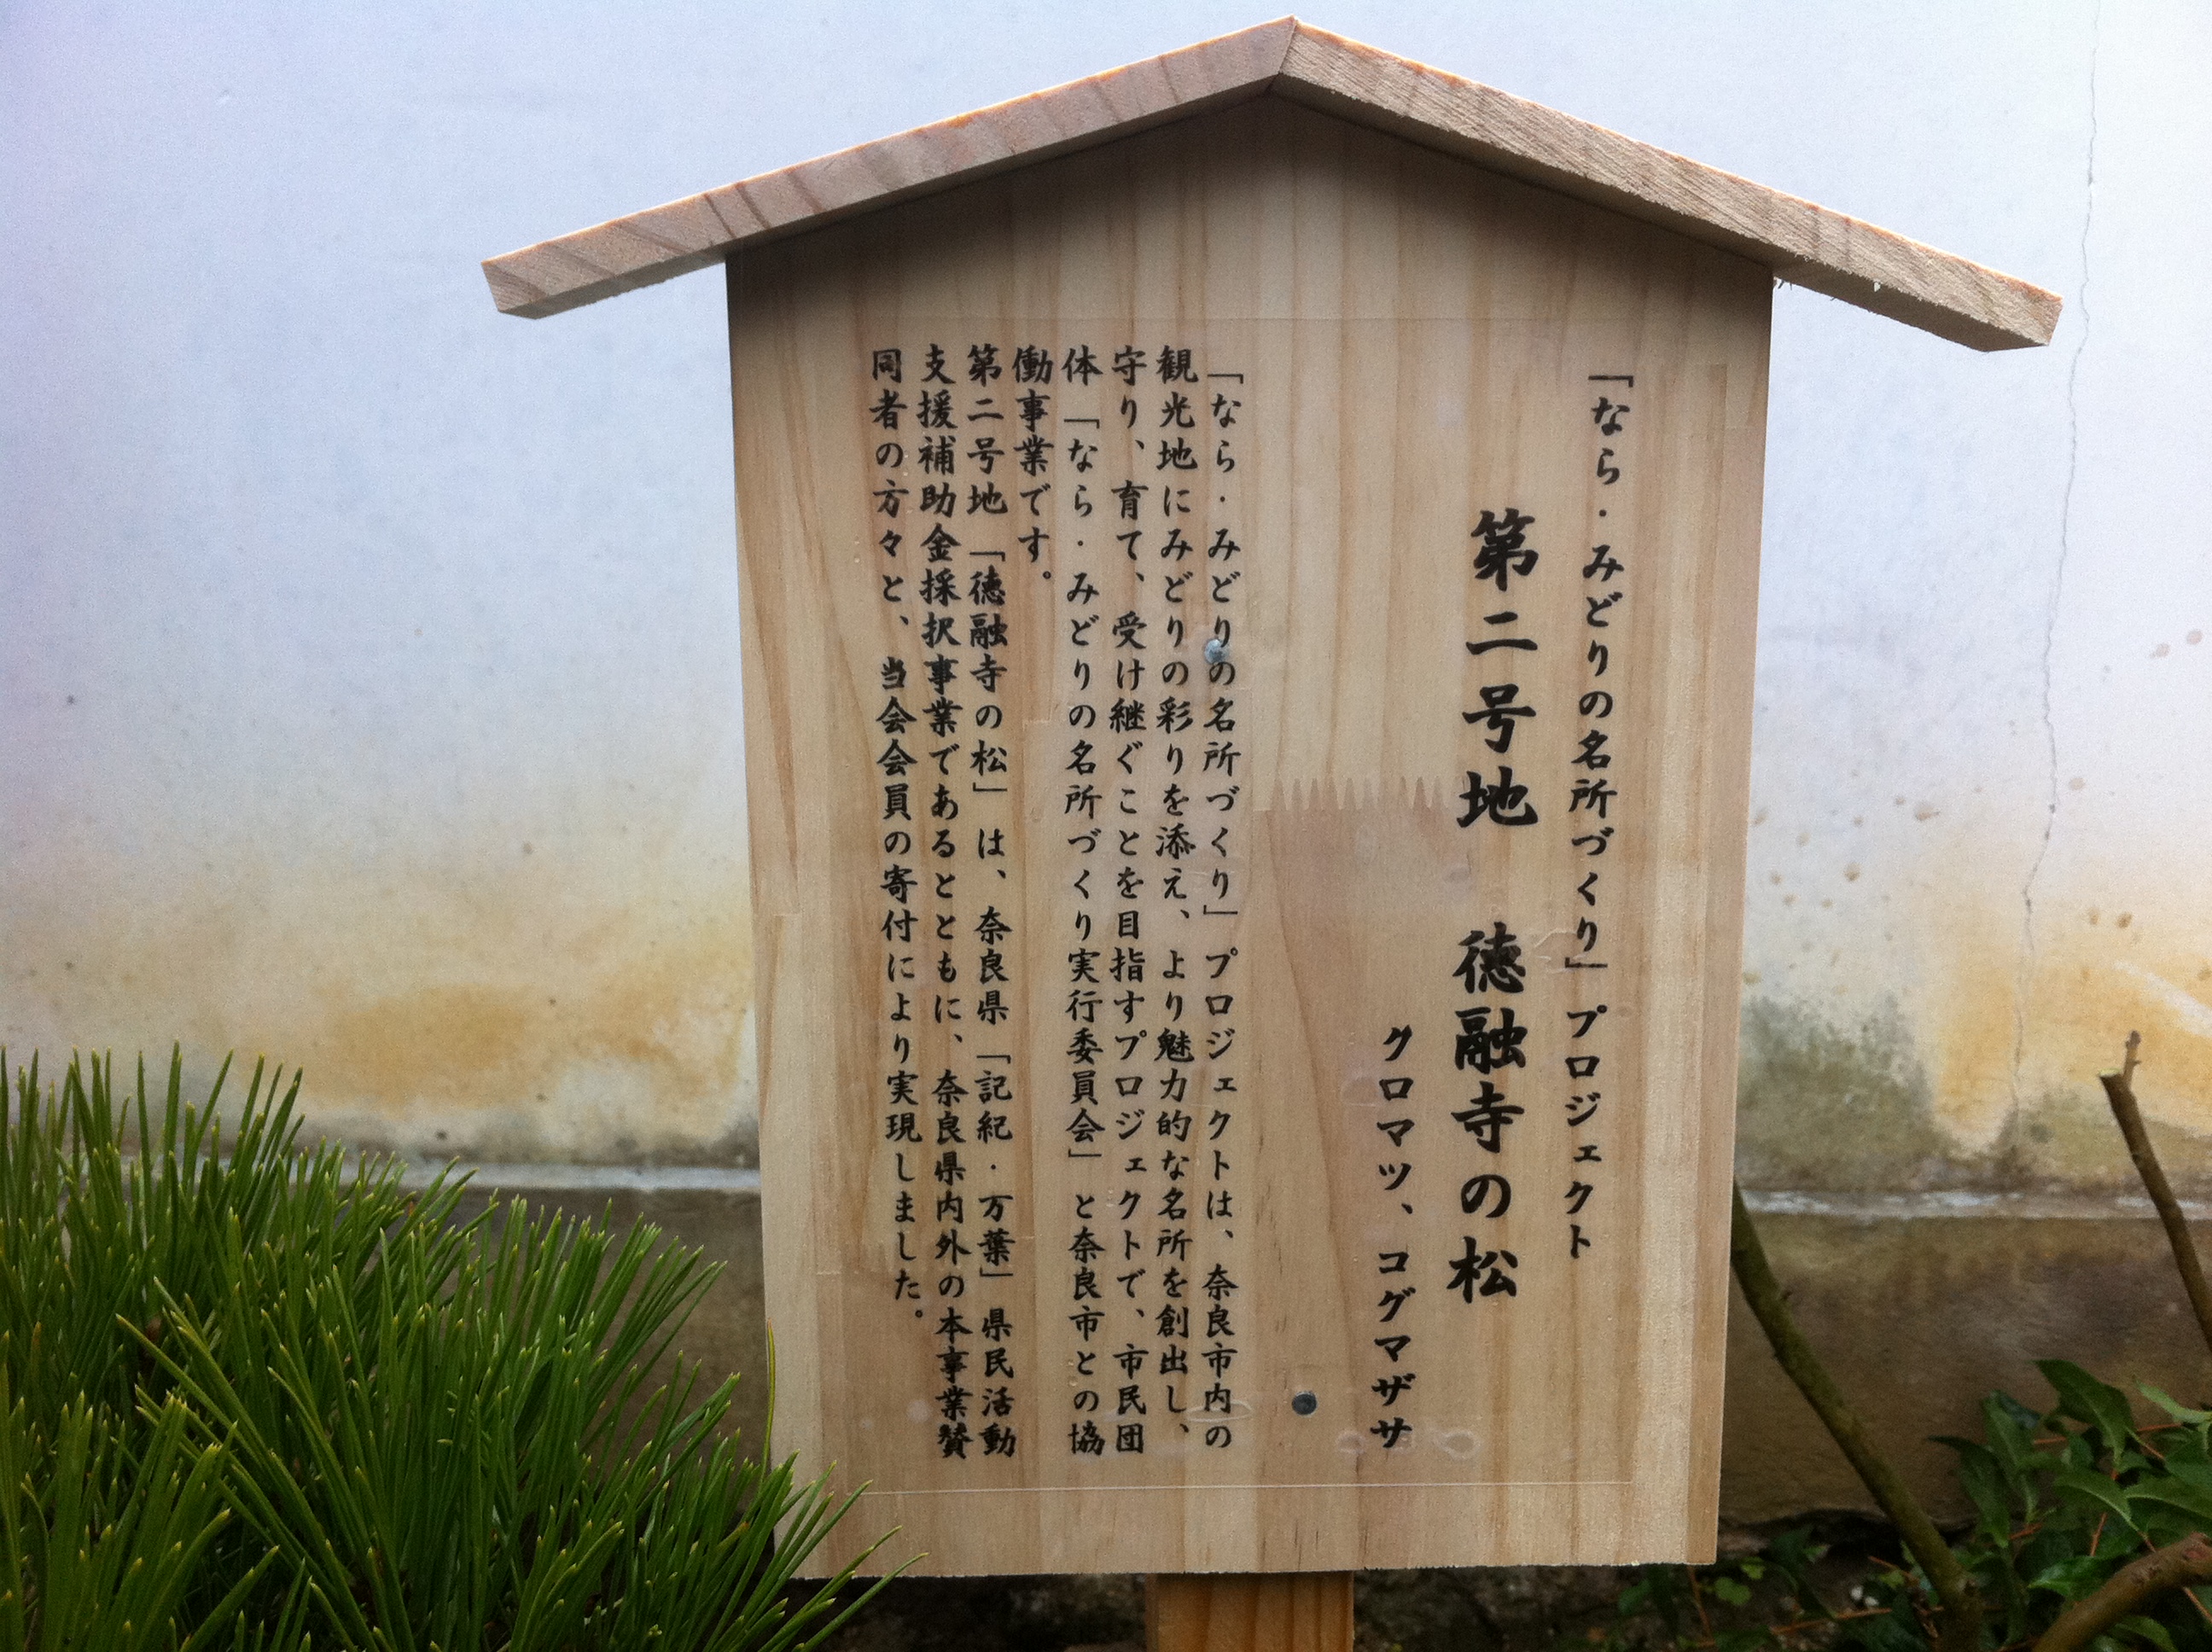 「なら・みどりの名所づくり」プロジェクト
第二号地　徳融寺の松
クロマツ、コグマザサ
「なら・みどりの名所づくり」プロジェクトは、奈良市内の
観光地にみどりの彩りを添え、より魅力的な名所を創出し、
守り、育て、受け継ぐことを目指すプロジェクトで、市民団
体「なら・みどりの名所づくり実行委員会」と奈良市との協
働事業です。
第二号地「徳融寺の松」は、奈良県「記紀・万葉」県民活動
支援補助金採択事業であるとともに、奈良県内外の本事業賛
同者の方々と、当会会員の寄付により実現しました。